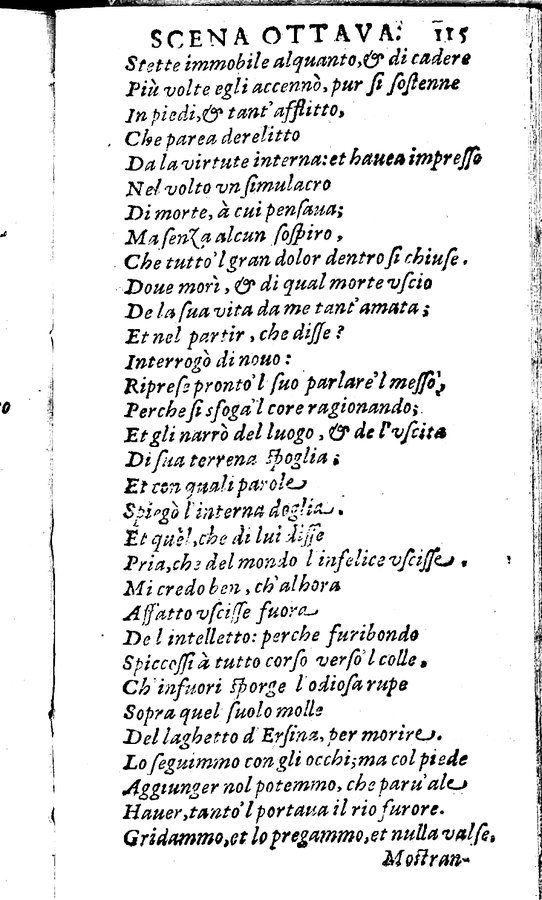 SCENA OTTAVA. 115
Stette immobile alquanto, & di cadere
Più volte egli accennò, pur si sostenne
In piedi, & tant'afflitto,
Che parea derelitto
Da la virtute interna: et hauea impresso
Nel volto vn simulacro
Di morte, à cui pensaua;
Ma senza alcun sospiro,
Che tutto'l gran dolor dentro si chiuse.
Doue morì, & di qual morte vscio
De la sua vita da me tant'amata;
Et nel partir, che disse?
Interrogò di nouo:
Riprese pronto'l suo parlare'l messo,
Perche si sfoga'l core ragionando;
Et gli narrò del luogo, & de l'vscita
Di sua terrena spoglia;
Et con quali parole
Spiegò l'interna doglia.
Et quèl, che di lui disse
Pria, che del mondo l infelice vscisse.
Mi credo ben, ch'alhora
Affatto vscisse fuora
De l intelletto: perche furibondo
Spiccossi à tutto corso verso'l colle,
Ch' infuori sporge l odiosa rupe
Sopra quel suolo molle
Del laghetto d Ersina, per morire.
Lo seguimmo con gli occhi; ma col piede
Aggiunger nol potemmo, che paru'ale
Hauer, tanto'l portaua il rio furore.
Gridammo, et lo pregammo, et nulla valse,
Mostran-